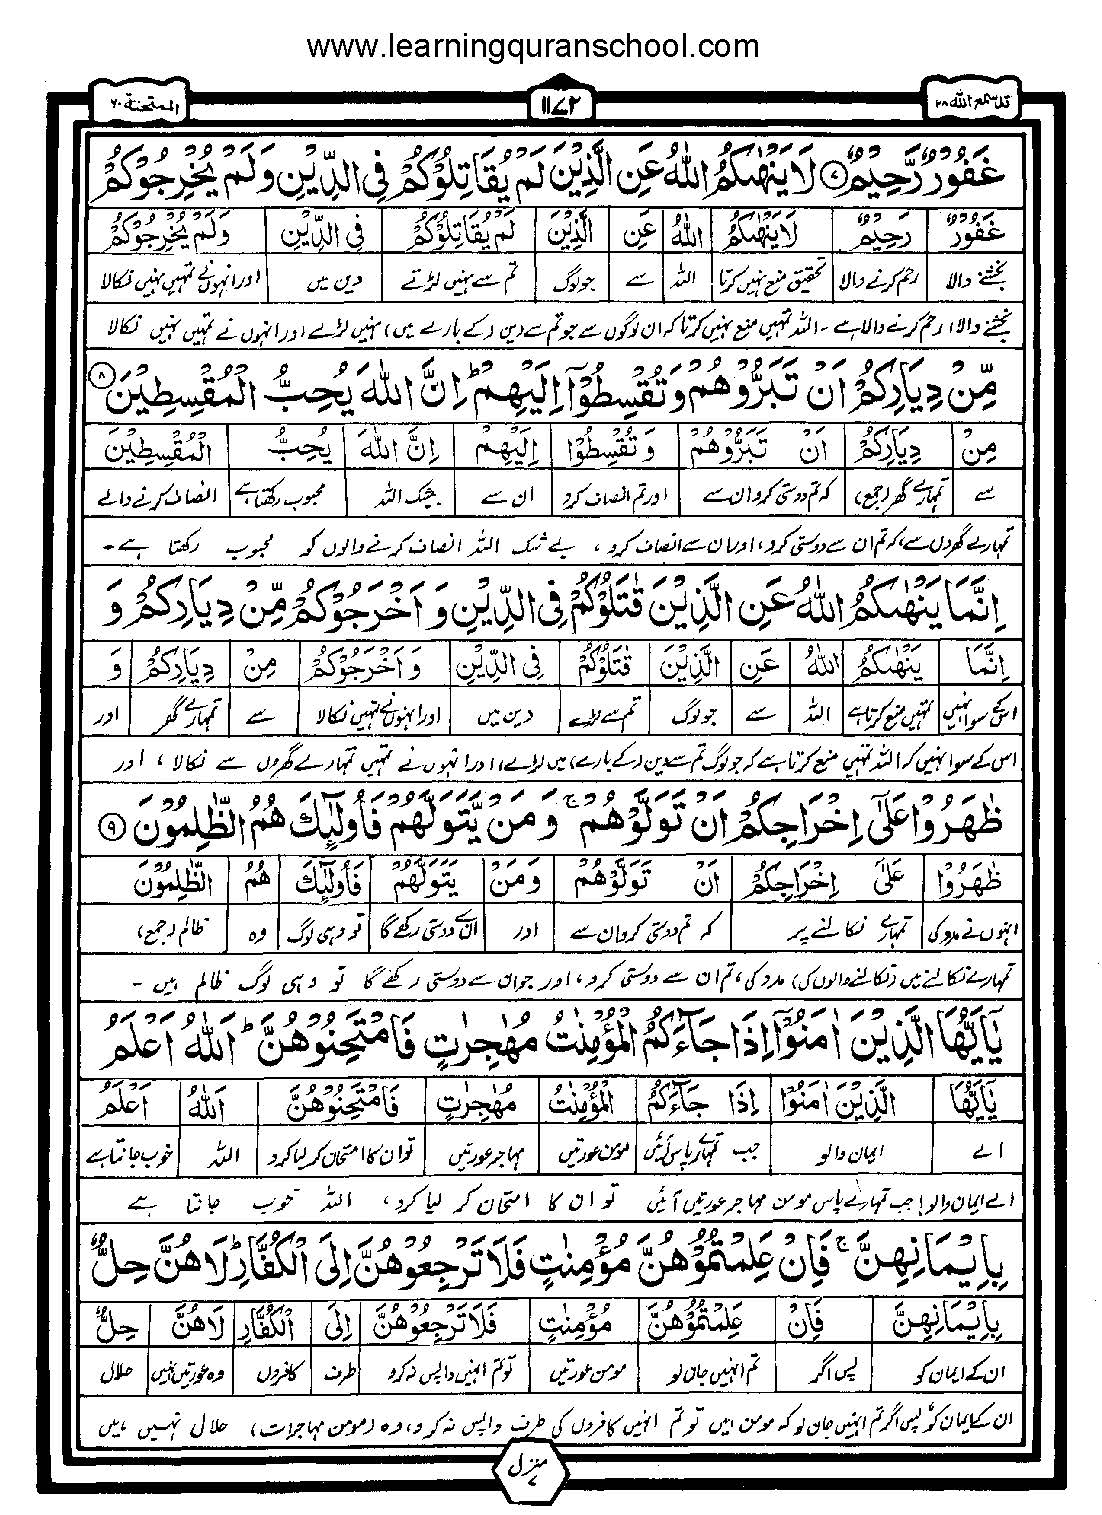 www.learningquranschool.com
قد سمع الله ۲۸
۱۱۷۲
الممتحنة ۶۰
غَفُوْرٌ رَّحِیْمٌ ۷ لَا یَنْهٰىكُمُ اللّٰهُ عَنِ الَّذِیْنَ لَمْ یُقَاتِلُوْكُمْ فِی الدِّیْنِ وَلَمْ یُخْرِجُوْكُمْ
غَفُوْرٌ رَحِیْمٌ لَا یَنْهٰىكُمُ اللّٰهُ عَنِ الَّذِیْنَ لَمْ یُقَاتِلُوْكُمْ فِی الدِّیْنِ وَلَمْ یُخْرِجُوْكُمْ
بخشنے والا رحم کرنے والا تحقیق منع نہیں کرتا اللہ سے جو لوگ تم سے نہیں لڑتے دین میں اور انہوں نے تمہیں نہیں نکالا
بخشنے والا، رحم کرنے والا ہے ۔ اللہ تمہیں منع نہیں کرتا کہ ان لوگوں سے جو تم سے دین (کے بارے میں) نہیں لڑے اور انہوں نے تمہیں نہیں نکالا
مِّنْ دِیَارِكُمْ اَنْ تَبَرُّوْهُمْ وَتُقْسِطُوْۤا اِلَیْهِمْ ؕ اِنَّ اللّٰهَ یُحِبُّ الْمُقْسِطِیْنَ ۸
مِنْ دِیَارِكُمْ اَنْ تَبَرُّوْهُمْ وَتُقْسِطُوْا اِلَیْهِمْ اِنَّ اللّٰهَ یُحِبُّ الْمُقْسِطِیْنَ
سے تمہارے گھر (جمع) کہ تم دوستی کرو ان سے اور تم انصاف کرو ان سے بیشک اللہ محبوب رکھتا ہے انصاف کرنے والے
تمہارے گھروں سے، کہ تم ان سے دوستی کرو، اور ان سے انصاف کرو ، بے شک اللہ انصاف کرنے والوں کو محبوب رکھتا ہے ۔
اِنَّمَا یَنْهٰىكُمُ اللّٰهُ عَنِ الَّذِیْنَ قٰتَلُوْكُمْ فِی الدِّیْنِ وَ اَخْرَجُوْكُمْ مِّنْ دِیَارِكُمْ وَ
اِنَّمَا یَنْهٰىكُمُ اللّٰهُ عَنِ الَّذِیْنَ قٰتَلُوْكُمْ فِی الدِّیْنِ وَ اَخْرَجُوْكُمْ مِنْ دِیَارِكُمْ وَ
اسکے سوا نہیں تمہیں منع کرتا ہے اللہ سے جو لوگ تم سے لڑے دین میں اور انہوں نے تمہیں نکالا سے تمہارے گھر اور
اس کے سوا نہیں کہ اللہ تمہیں منع کرتا ہے کہ جو لوگ تم سے دین (کے بارے) میں لڑے، اور انہوں نے تمہیں تمہارے گھروں سے نکالا ، اور
ظٰهَرُوْا عَلٰۤى اِخْرَاجِكُمْ اَنْ تَوَلَّوْهُمْ ۚ وَ مَنْ یَّتَوَلَّهُمْ فَاُولٰٓىِٕكَ هُمُ الظّٰلِمُوْنَ ۹
ظٰهَرُوْا عَلٰٓى اِخْرَاجِكُمْ اَنْ تَوَلَّوْهُمْ وَمَنْ یَتَوَلَّهُمْ فَاُولٰٓىِٕكَ هُمُ الظّٰلِمُوْنَ
انہوں نے مدد کی تمہارے نکالنے پر کہ تم دوستی کرو ان سے اور ان سے دوستی رکھے گا تو وہی لوگ وہ ظالم (جمع)
تمہارے نکالنے میں (نکالنے والوں کی) مدد کی، تم ان سے دوستی کرو، اور جو ان سے دوستی رکھے گا تو وہی لوگ ظالم ہیں ۔
یٰۤاَیُّهَا الَّذِیْنَ اٰمَنُوْۤا اِذَا جَآءَكُمُ الْمُؤْمِنٰتُ مُهٰجِرٰتٍ فَامْتَحِنُوْهُنَّ ؕ اَللّٰهُ اَعْلَمُ
یٰۤاَیُّهَا الَّذِیْنَ اٰمَنُوْا اِذَا جَآءَكُمُ الْمُؤْمِنٰتُ مُهٰجِرٰتٍ فَامْتَحِنُوْهُنَّ اَللّٰهُ اَعْلَمُ
اے ایمان والو جب تمہارے پاس آئیں مومن عورتیں مہاجر عورتیں تو ان کا امتحان کر لیا کرو اللہ خوب جانتا ہے
اے ایمان والو! جب تمہارے پاس مومن مہاجر عورتیں آئیں تو ان کا امتحان کر لیا کرو، اللہ خوب جانتا ہے
بِاِیْمَانِهِنَّ ۚ فَاِنْ عَلِمْتُمُوْهُنَّ مُؤْمِنٰتٍ فَلَا تَرْجِعُوْهُنَّ اِلَى الْكُفَّارِ ؕ لَا هُنَّ حِلٌّ
بِاِیْمَانِهِنَّ فَاِنْ عَلِمْتُمُوْهُنَّ مُؤْمِنٰتٍ فَلَا تَرْجِعُوْهُنَّ اِلَى الْكُفَّارِ لَا هُنَّ حِلٌّ
ان کے ایمان کو پس اگر تم انہیں جان لو مومن عورتیں تو تم انہیں واپس نہ کرو طرف کافروں وہ عورتیں نہیں حلال
ان کے ایمان کو، پس اگر تم انہیں جان لو کہ مومن ہیں تو تم انہیں کافروں کی طرف واپس نہ کرو، وہ (مومن مہاجرات) حلال نہیں ہیں
منزل ۷